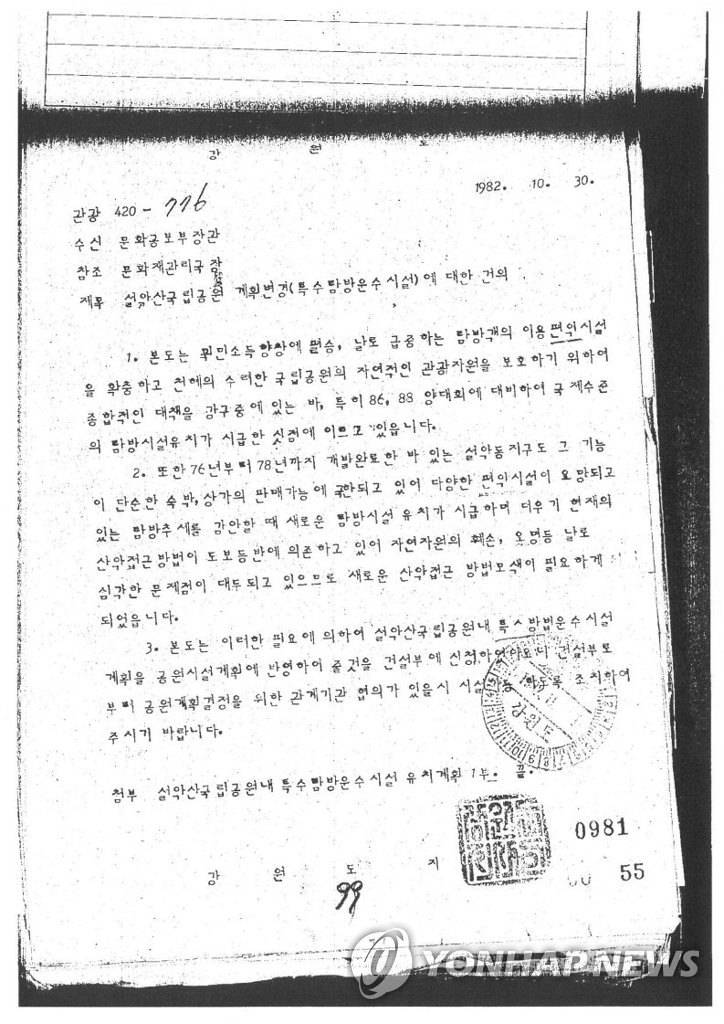 강 원 도
1982. 10. 30.
관광 420 - 776
수신 문화공보부장관
참조 문화재관리국장
제목 설악산국립공원 계획변경(특수탐방운수시설)에 대한 건의
1. 본도는 국민소득향상에 편승, 날로 급증하는 탐방객의 이용편익시설
을 확충하고 천혜의 수려한 국립공원의 자연적인 관광자원을 보호하기 위하여
종합적인 대책을 강구중에 있는 바, 특히 86, 88 양대회에 대비하여 국제수준
의 탐방시설유치가 시급한 싯점에 이르고 있읍니다.
2. 또한 76년부터 78년까지 개발완료한 바 있는 설악동지구도 그 기능
이 단순한 숙박, 상가의 판매기능에 국한되고 있어 다양한 편익시설이 요망되고
있는 탐방추세를 감안할 때 새로운 탐방시설 유치가 시급하며 더우기 현재의
산악접근 방법이 도보등반에 의존하고 있어 자연자원의 훼손, 오염등 날로
심각한 문제점이 대두되고 있으므로 새로운 산악접근 방법모색이 필요하게
되었읍니다.
3. 본도는 이러한 필요에 의하여 설악산국립공원내 특수방법운수시설
계획을 공원시설계획에 반영하여 줄것을 건설부에 신청하였아오니 건설부로
부터 공원계획결정을 위한 관계기관 협의가 있을시 시설 하도록 조치하여
주시기 바랍니다.
강원도
첨부 설악산국립공원내 특수탐방운수시설 유치계획 1부. 끝.
0981
55
강 원 도 지
99
YONHAP NEWS